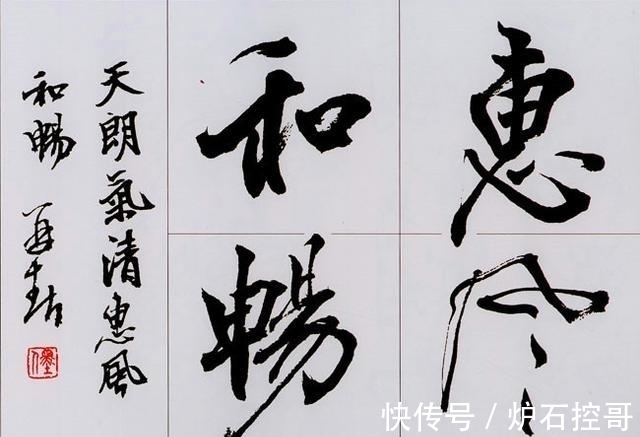 惠风
和暢
天朗氣清惠風
和暢
快传号 / 炉石控哥